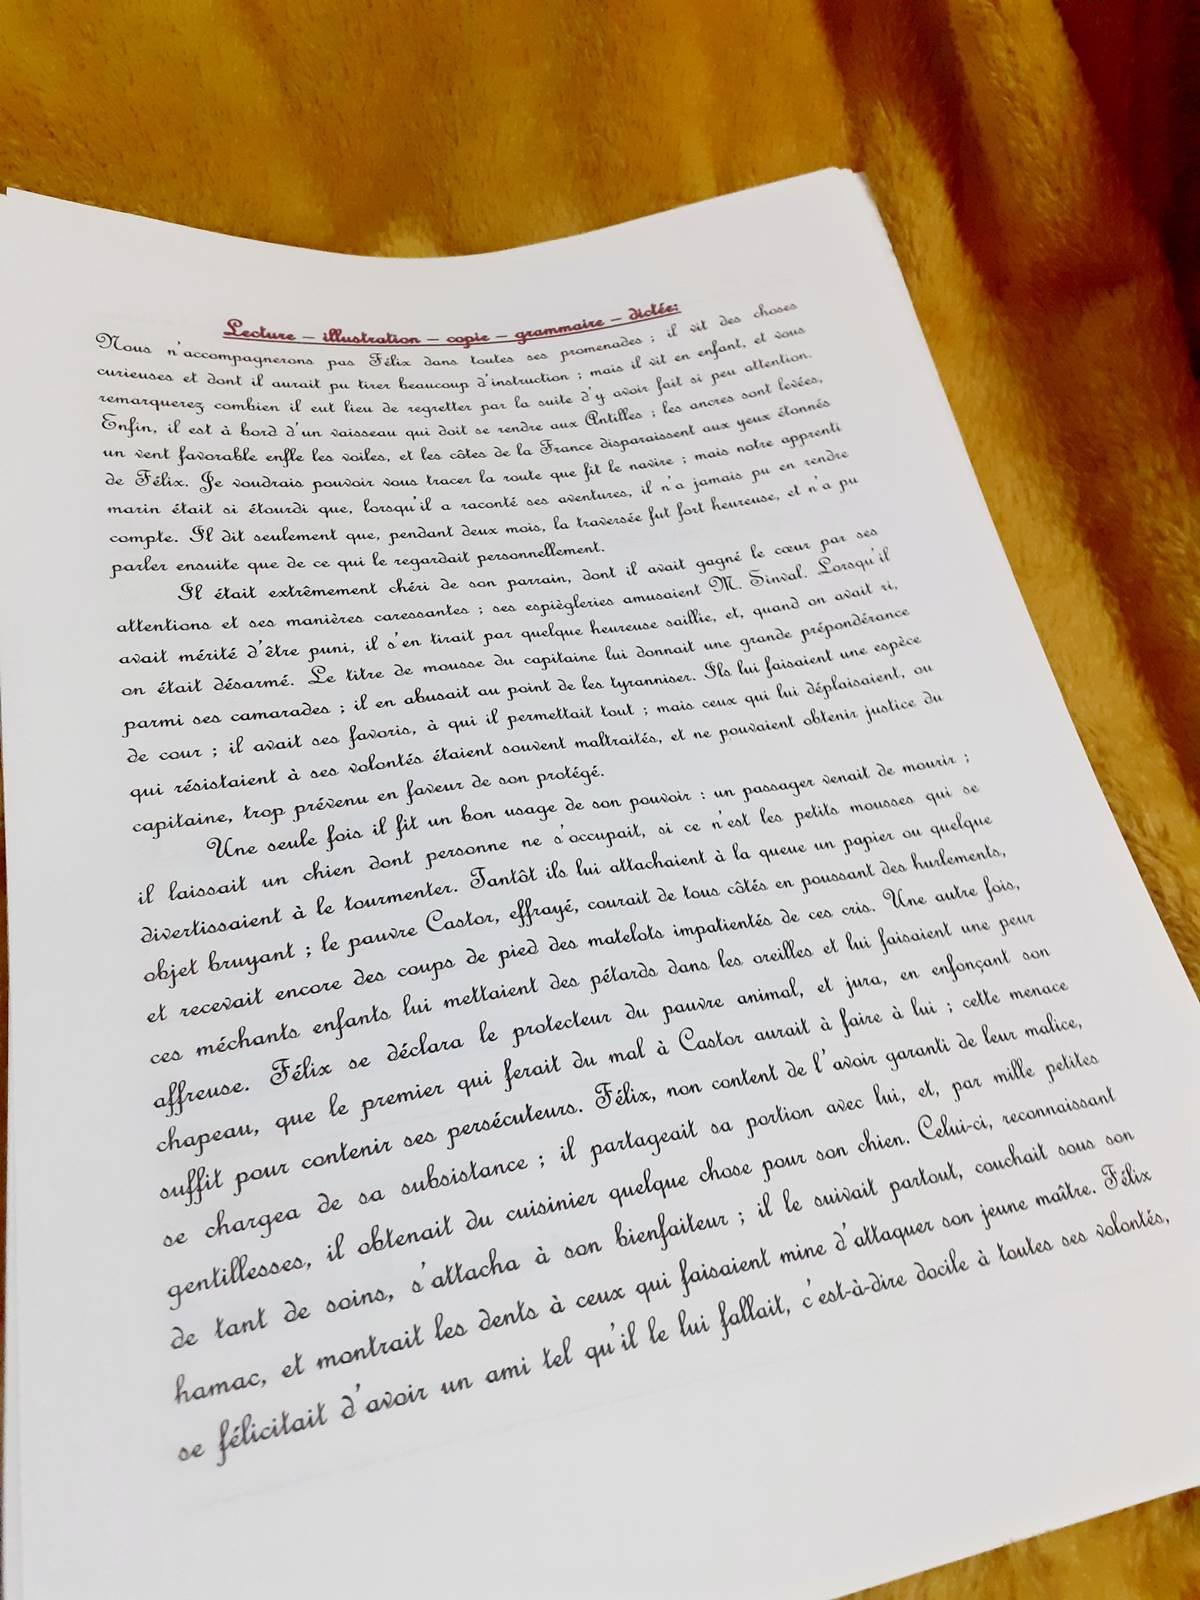 Lecture – illustration – copie – grammaire – dictée:
Nous n'accompagnerons pas Félix dans toutes ses promenades ; il vit des choses
curieuses et dont il aurait pu tirer beaucoup d'instruction ; mais il vit en enfant, et vous
remarquerez combien il eut lieu de regretter par la suite d'y avoir fait si peu attention.
Enfin, il est à bord d'un vaisseau qui doit se rendre aux Antilles ; les ancres sont levées,
un vent favorable enfle les voiles, et les côtes de la France disparaissent aux yeux étonnés
de Félix. Je voudrais pouvoir vous tracer la route que fit le navire ; mais notre apprenti
marin était si étourdi que, lorsqu'il a raconté ses aventures, il n'a jamais pu en rendre
compte. Il dit seulement que, pendant deux mois, la traversée fut fort heureuse, et n'a pu
parler ensuite que de ce qui le regardait personnellement.
Il était extrêmement chéri de son parrain, dont il avait gagné le cœur par ses
attentions et ses manières caressantes ; ses espiègleries amusaient M. Sinval. Lorsqu'il
avait mérité d'être puni, il s'en tirait par quelque heureuse saillie, et, quand on avait ri,
on était désarmé. Le titre de mousse du capitaine lui donnait une grande prépondérance
parmi ses camarades ; il en abusait au point de les tyranniser. Ils lui faisaient une espèce
de cour ; il avait ses favoris, à qui il permettait tout ; mais ceux qui lui déplaisaient, ou
qui résistaient à ses volontés étaient souvent maltraités, et ne pouvaient obtenir justice du
capitaine, trop prévenu en faveur de son protégé.
Une seule fois il fit un bon usage de son pouvoir : un passager venait de mourir ;
il laissait un chien dont personne ne s'occupait, si ce n'est les petits mousses qui se
divertissaient à le tourmenter. Tantôt ils lui attachaient à la queue un papier ou quelque
objet bruyant ; le pauvre Castor, effrayé, courait de tous côtés en poussant des hurlements,
et recevait encore des coups de pied des matelots impatientés de ces cris. Une autre fois,
ces méchants enfants lui mettaient des pétards dans les oreilles et lui faisaient une peur
affreuse. Félix se déclara le protecteur du pauvre animal, et jura, en enfonçant son
chapeau, que le premier qui ferait du mal à Castor aurait à faire à lui ; cette menace
suffit pour contenir ses persécuteurs. Félix, non content de l'avoir garanti de leur malice,
se chargea de sa subsistance ; il partageait sa portion avec lui, et, par mille petites
gentillesses, il obtenait du cuisinier quelque chose pour son chien. Celui-ci, reconnaissant
de tant de soins, s'attacha à son bienfaiteur ; il le suivait partout, couchait sous son
hamac, et montrait les dents à ceux qui faisaient mine d'attaquer son jeune maître. Félix
se félicitait d'avoir un ami tel qu'il le lui fallait, c'est-à-dire docile à toutes ses volontés,